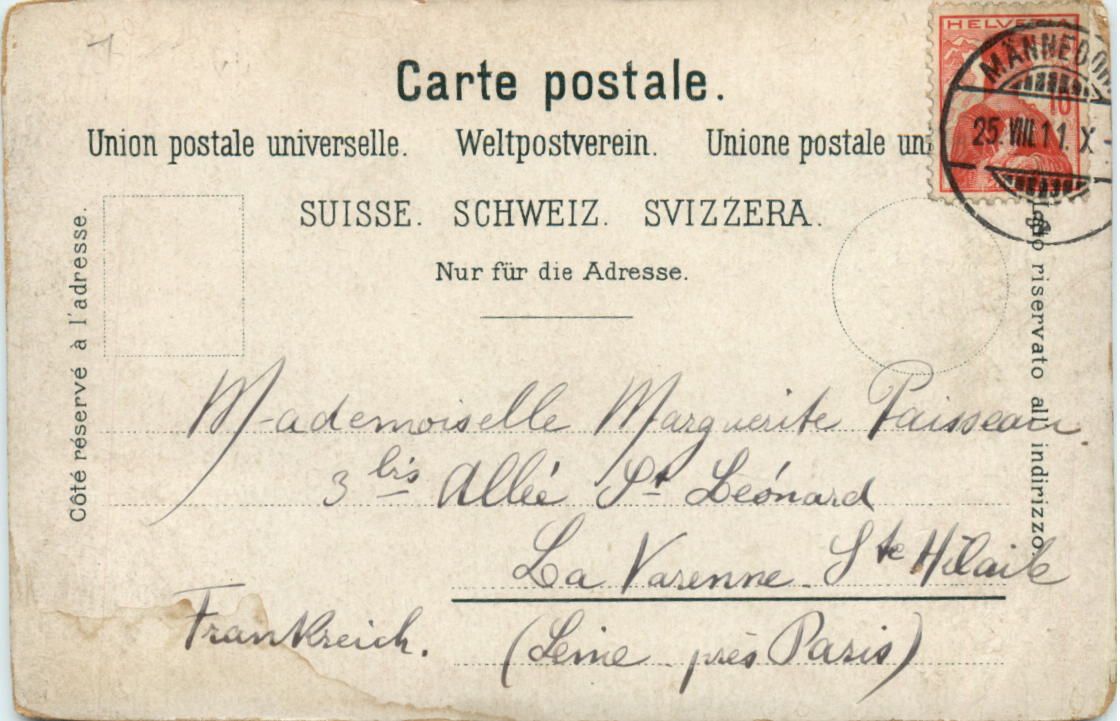 Carte postale.
Union postale universelle. Weltpostverein. Unione postale uni
SUISSE. SCHWEIZ. SVIZZERA.
Nur für die Adresse.
Côté réservé à l'adresse.
HELVE
10
MÄNNEDO
25. VIII. 11. X -
riservato all' indirizzo.
Mademoiselle Marguerite Paisseau.
3 bis Allée St Léonard
La Varenne Ste Hilaire
Frankreich. (Seine près Paris)